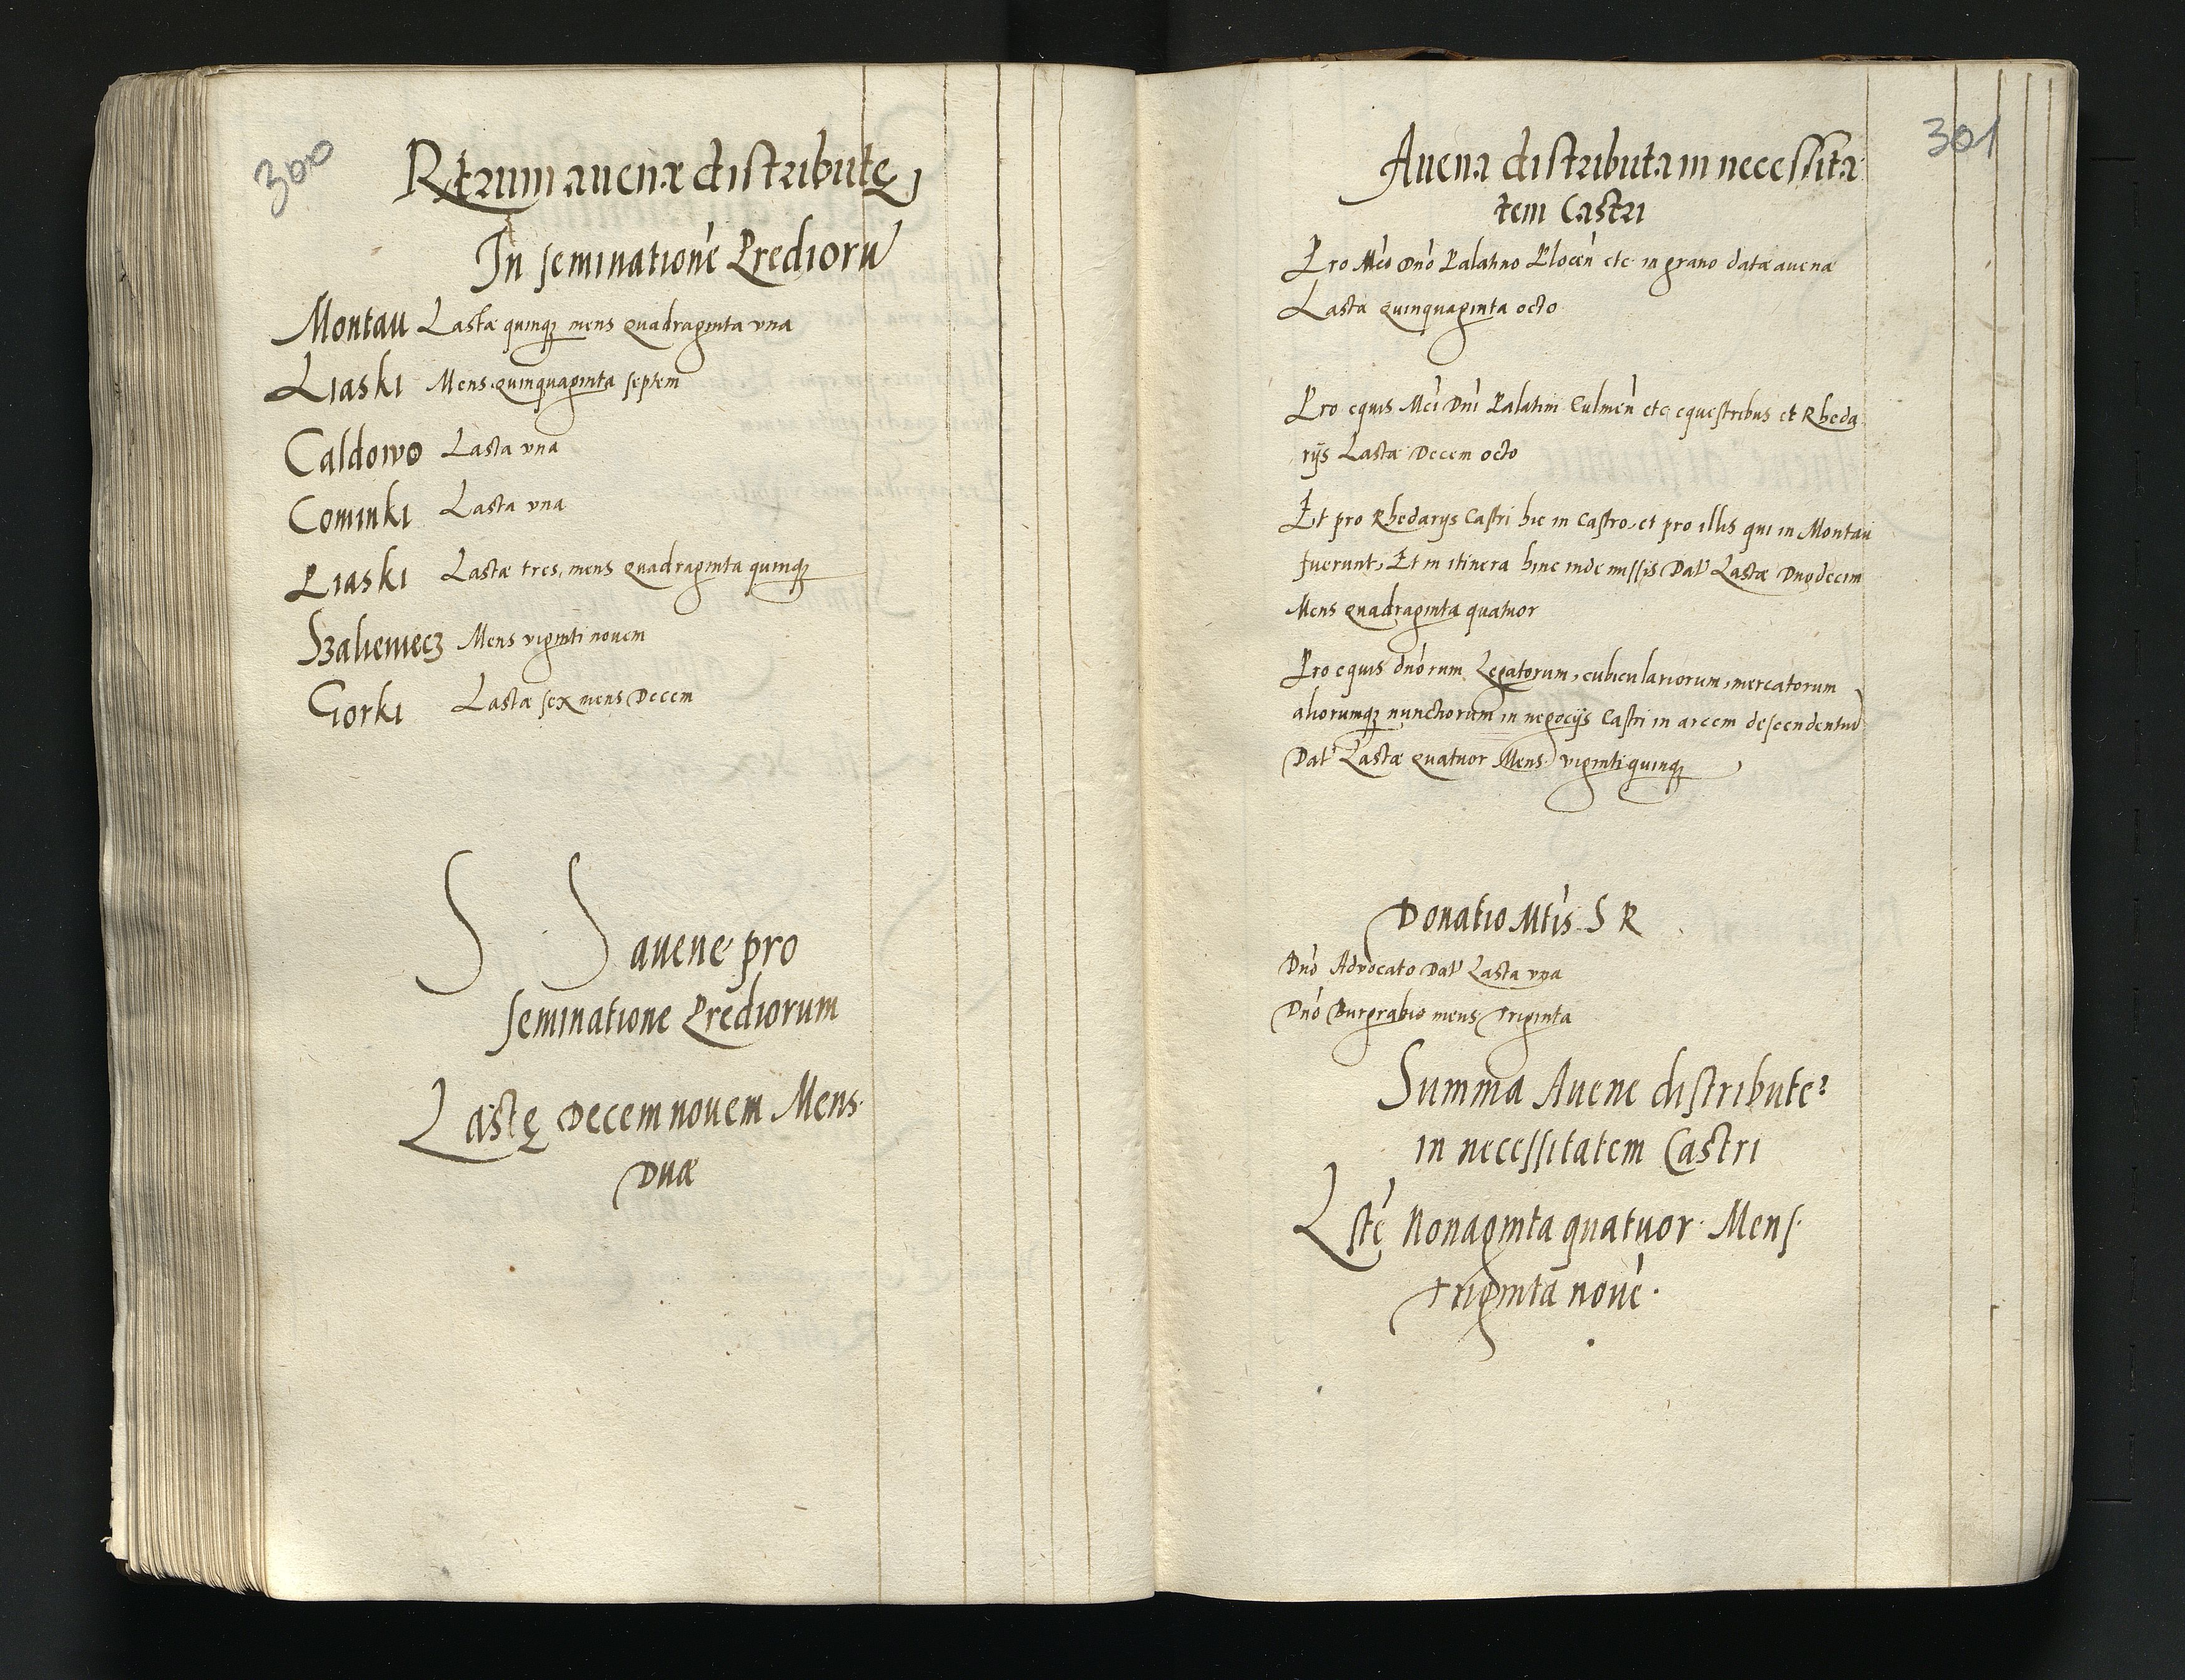 300
Rtrum auenæ distributę
In seminationé Prediorú
Montau Lastæ quinqз mens quadraginta vna
Liaski Mens quinquaginta septem
Caldowo Lasta vna
Cominki Lasta vna
Piaski Lastæ tres, mens quadraginta quinqз
Szalieniecz Mens viginti nouem
Gorki Lastæ sex mens Decem
S S auene pro
seminatione Prediorum
Lastę Decem nouem Mens.
Duæ
301
Auena distributa in necessita
tem Castri
Pro Mco Dno Palatino Plocen etc in grano datæ auenæ
Lasta quinquaginta octo
Pro equis Mci Dni Palatini Culmen etc equestribus et Rheda
rijs Lastæ Decem octo
Et pro Rhedarijs Castri hic in Castro, et pro illis qui in Montau
fuerunt, Et in itinera hinc inde missis Dat Lastæ Duodecim
Mens quadraginta quatuor
Pro equis dnorum Legatorum, cubiculariorum, mercatorum
aliorumqз nunctiorum in negocijs Castri in arcem descendentiu
Dat Lastæ quatuor Mens viginti quinqз
Donatio Mtis S R
Dno Advocato Dat Lasta vna
Dno Burgrabio mens Triginta
Summa Auene distribute
in necessitatem Castri
Lstę Nonaginta quatuor Mens.
triginta noué.